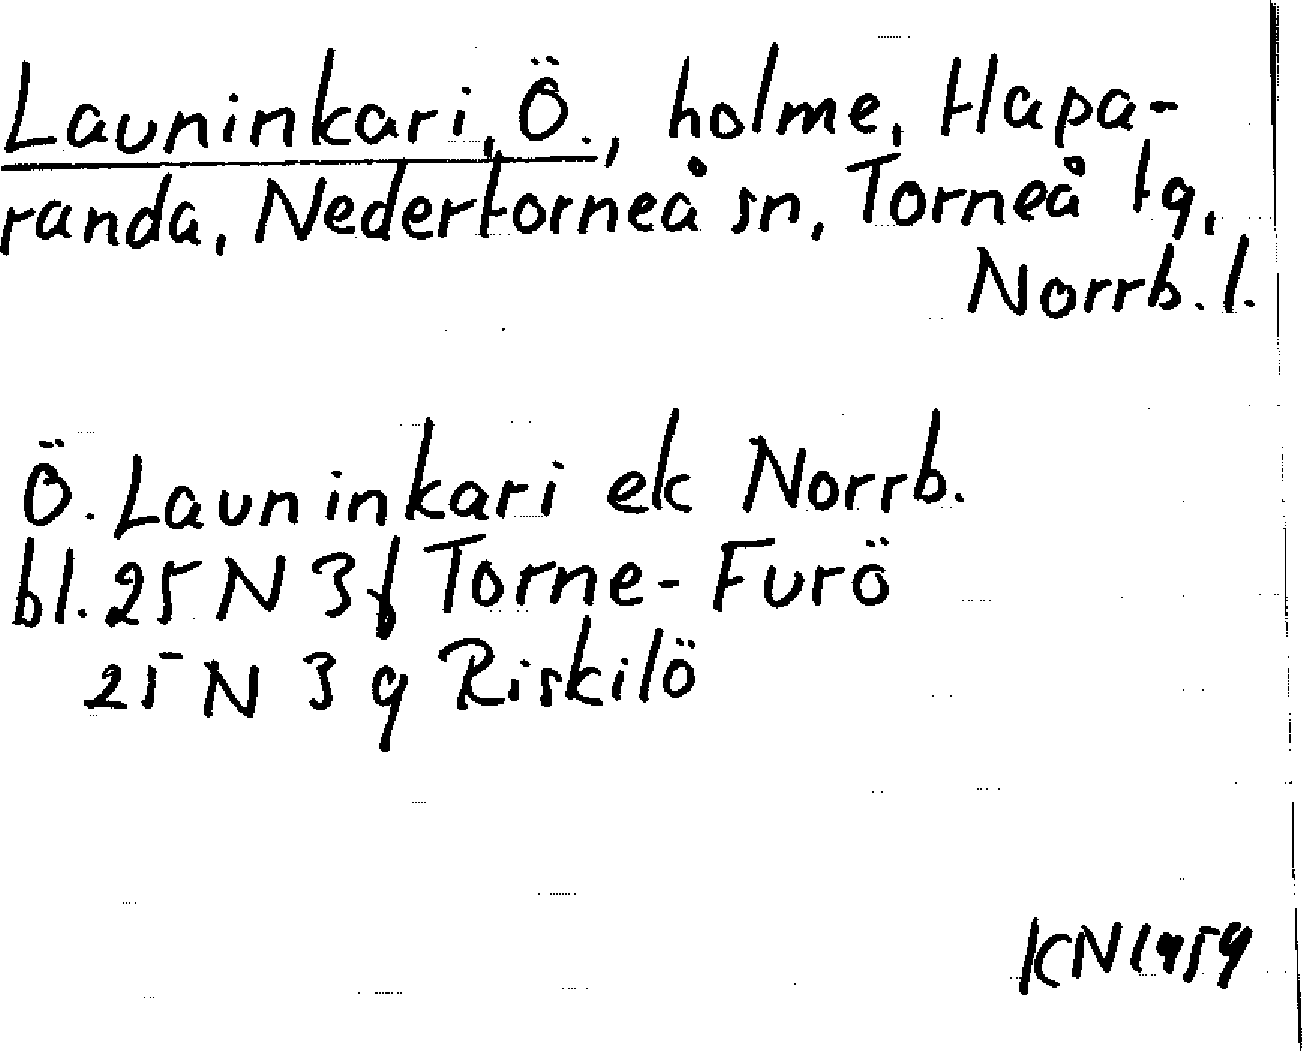 Launinkari, Ö., holme, Hapa-
randa, Nedertorneå sn, Torneå tg,
Norrb. l.
Ö. Launinkari ek Norrb.
bl. 25 N 3f Torne-Furö
25 N 3 g Riskilö
KN 1959